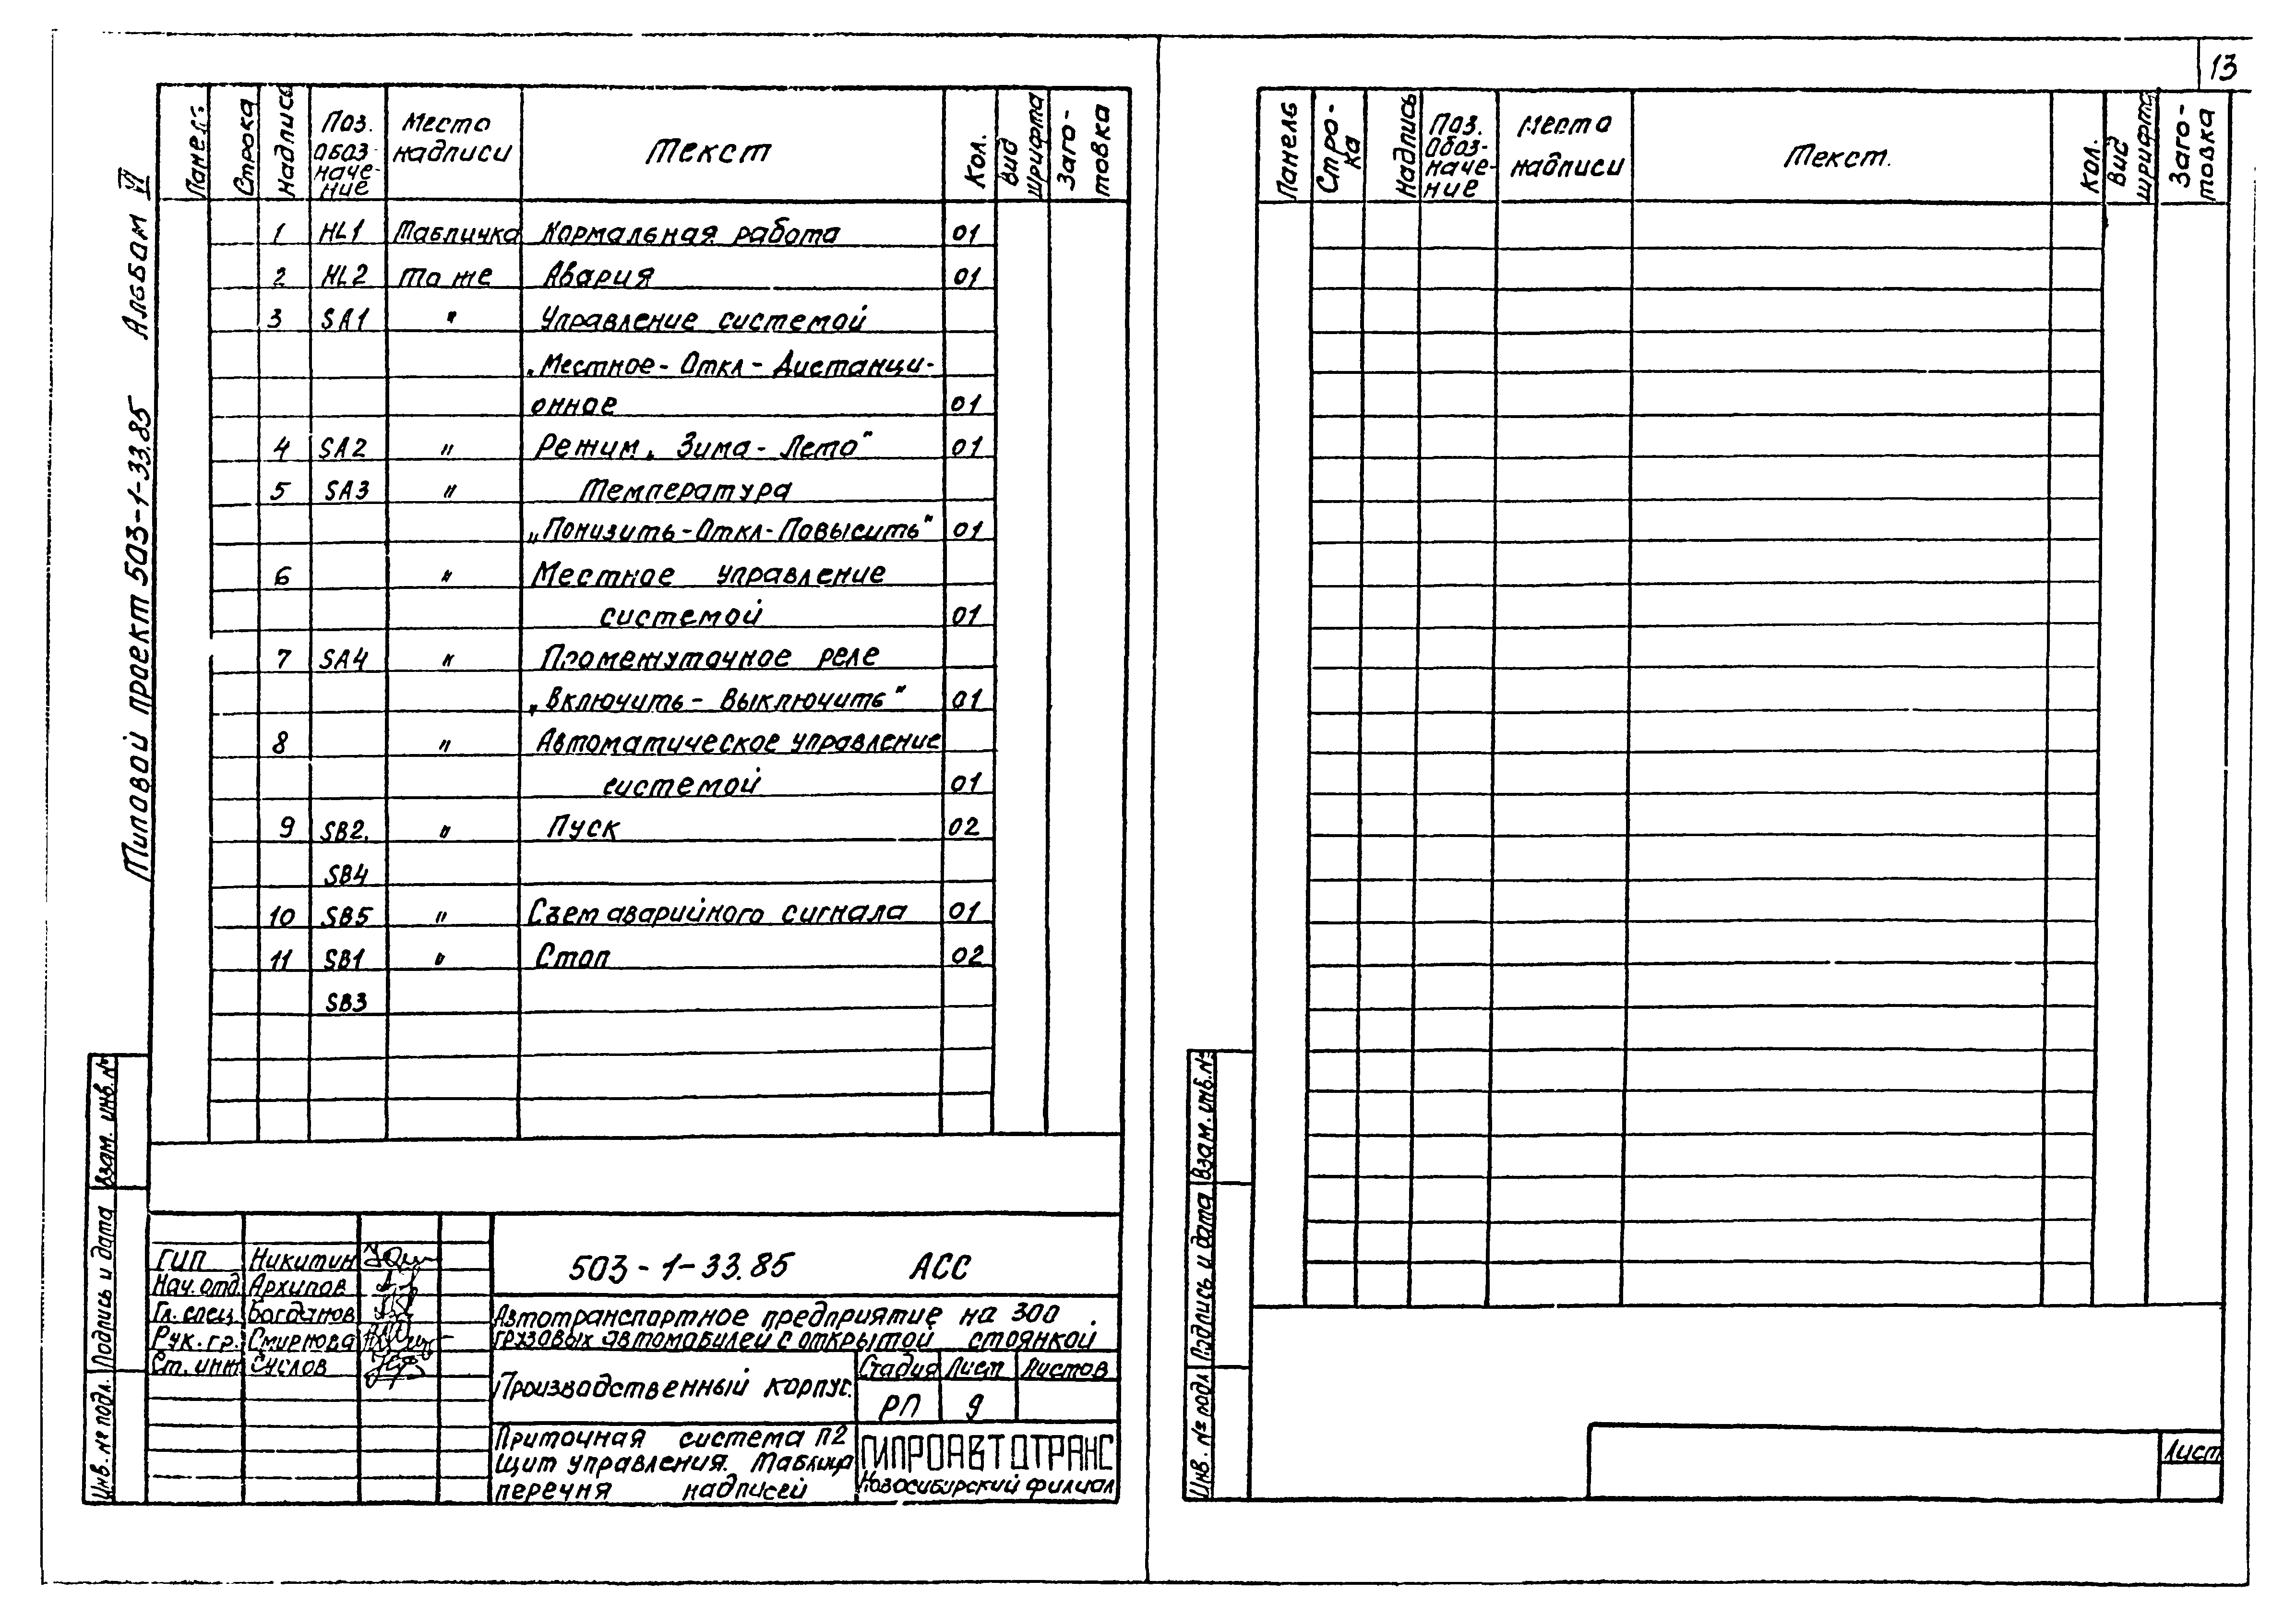 13
Типовой проект 503-1-33.85 Альбом VI
Панель Строка Надпись Поз. обоз-наче-ние Место надписи Текст Кол. Вид шрифта Заго-товка
1 HL1 Табличка Нормальная работа 01
2 HL2 То же Авария 01
3 SA1 " Управление системой
„Местное - Откл - Дистанци-
онное 01
4 SA2 " Режим „Зима - Лето" 01
5 SA3 " Температура
„Понизить - Откл - Повысить" 01
6 " Местное управление
системой 01
7 SA4 " Промежуточное реле
„Включить - Выключить" 01
8 " Автоматическое управление
системой 01
9 SB2, " Пуск 02
SB4
10 SB5 " Съем аварийного сигнала 01
11 SB1 " Стоп 02
SB3
Взам. инв. №
Подпись и дата
Инв. № подл.
ГИП Никитин
Нач. отд. Архипов
Гл. спец. Богданов
Рук. гр. Смирнова
Ст. инж. Суслов
503-1-33.85 АСС
Автотранспортное предприятие на 300
грузовых автомобилей с открытой стоянкой
Производственный корпус.
Стадия Лист Листов
РП 9
Приточная система П2
Щит управления. Таблица
перечня надписей
ГИПРОАВТОТРАНС
Новосибирский филиал
Панель Стро-ка Надпись Поз. Обоз-наче-ние Место надписи Текст. Кол. Вид шрифта Заго-товка
Взам. инв. №
Подпись и дата
Инв. № подл
Лист